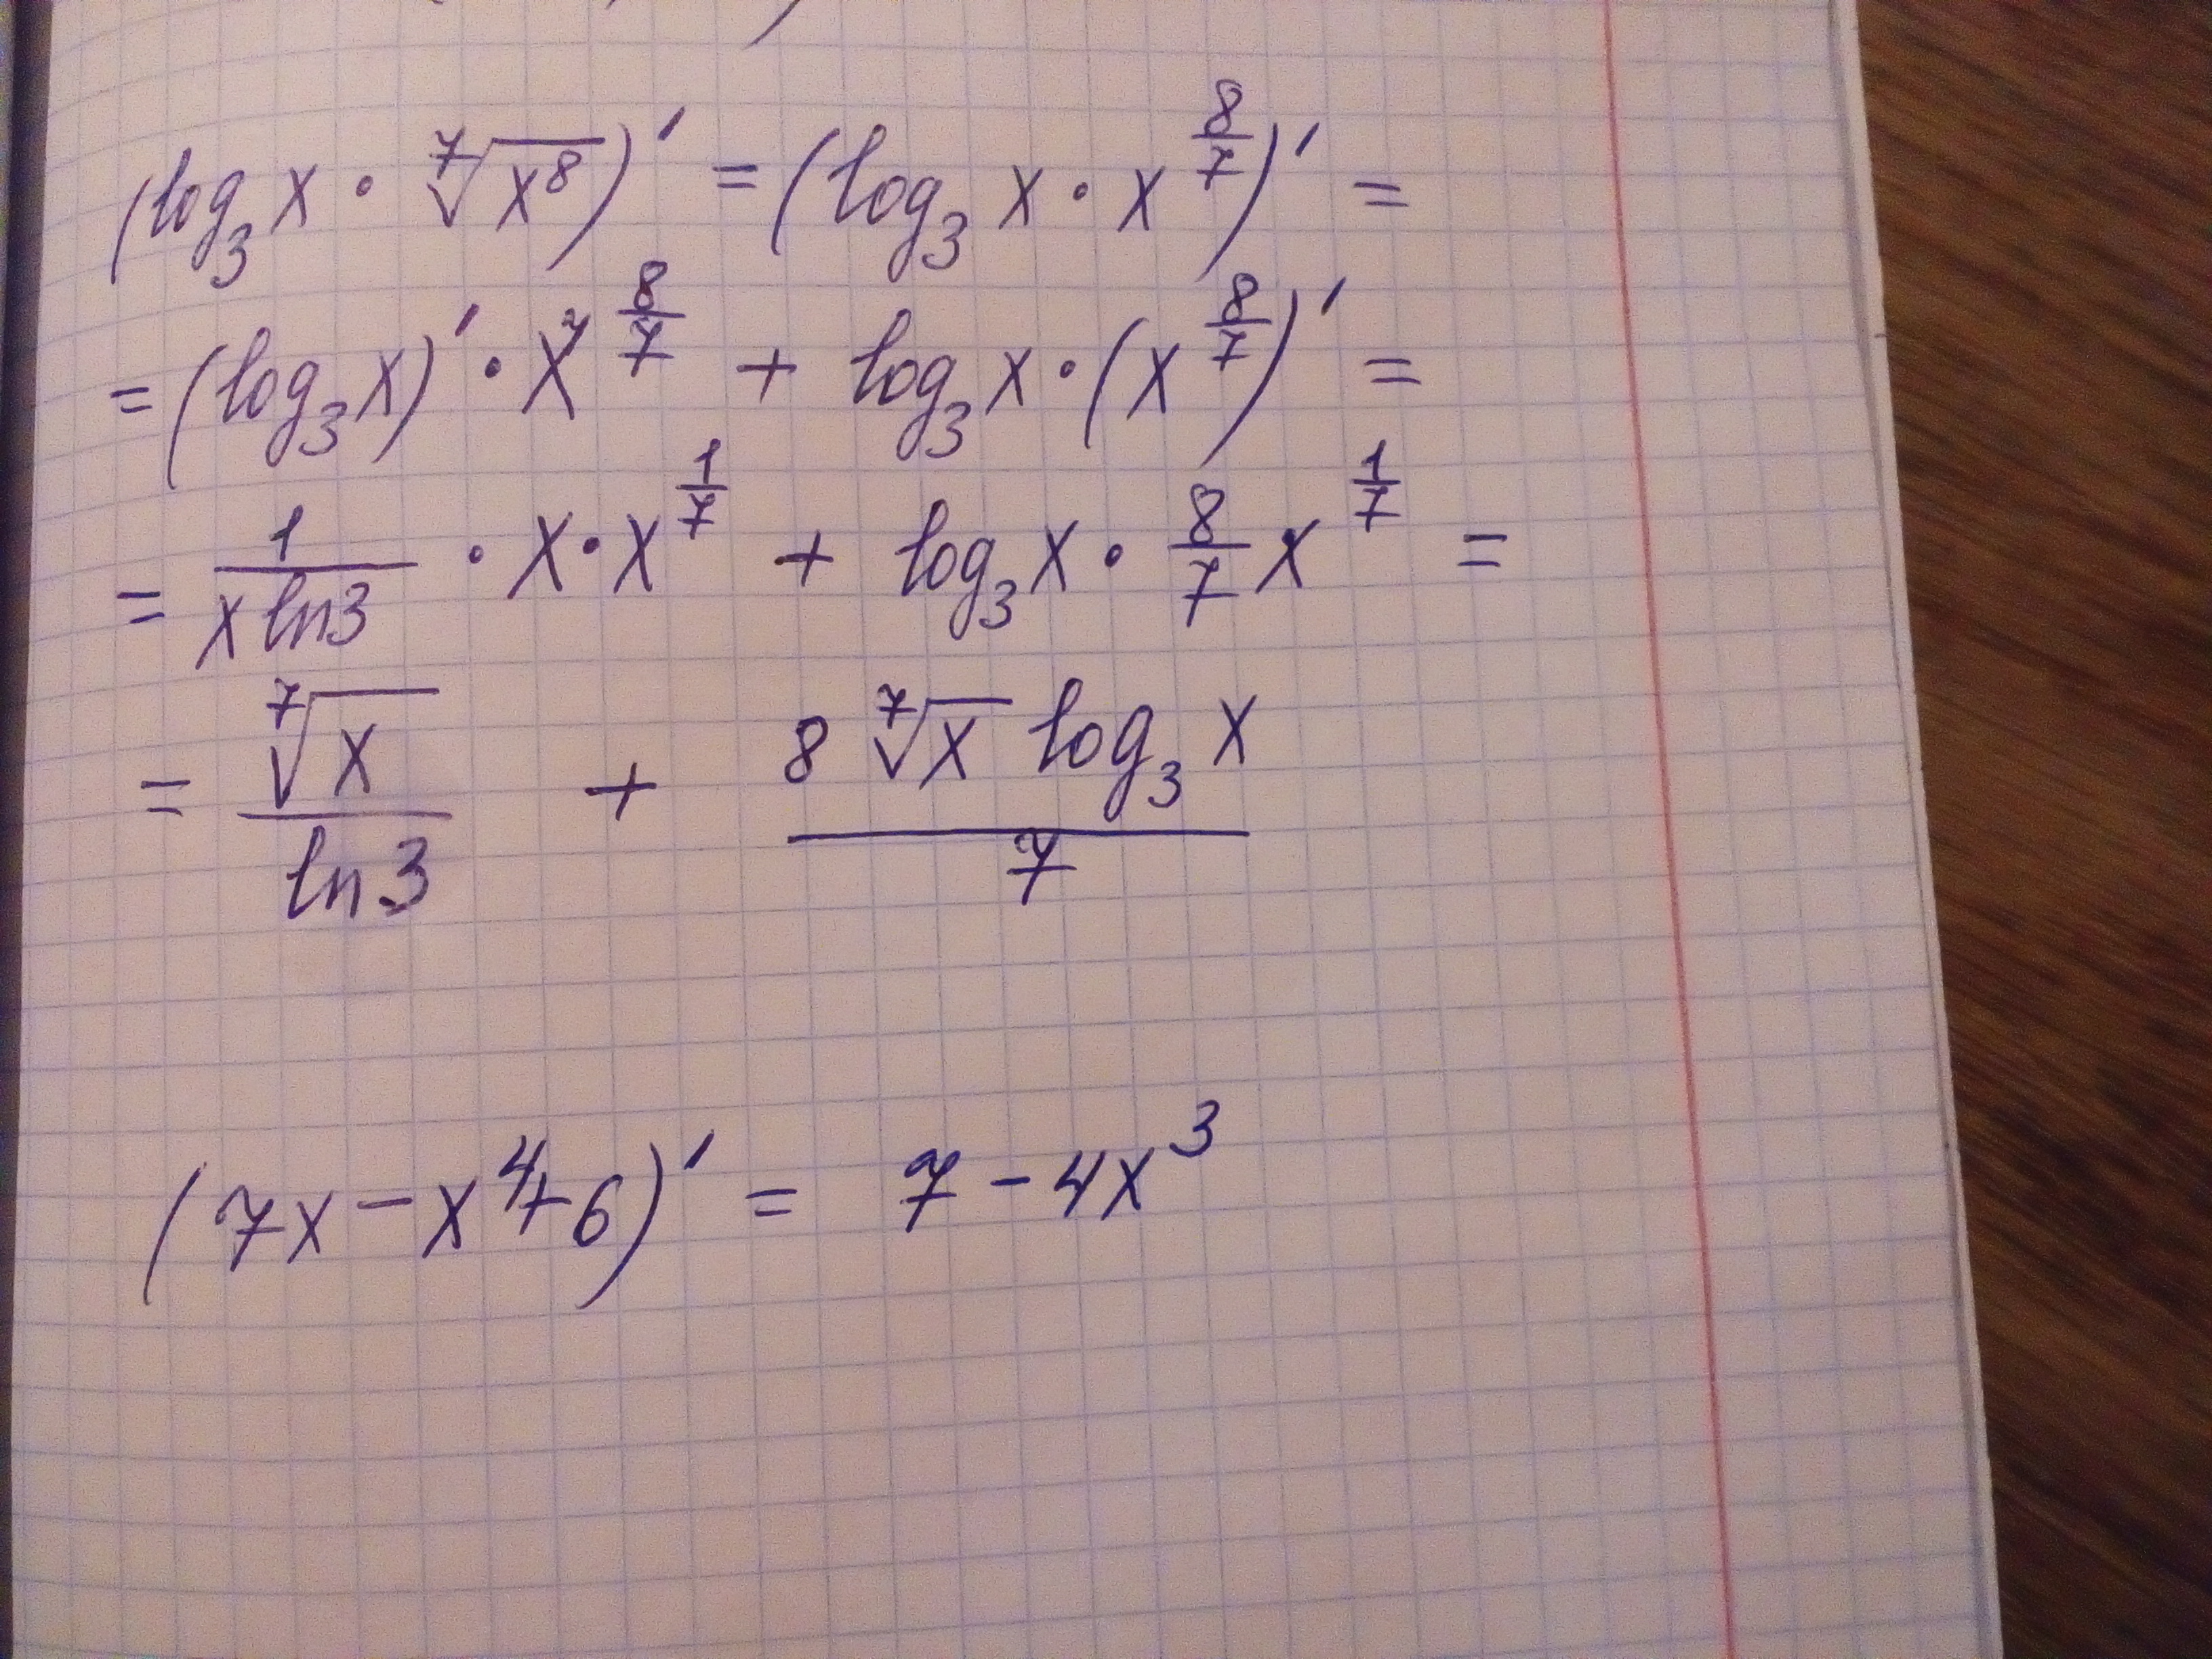 (log₃x · ⁷√x⁸)′ = (log₃x · x^(8/7))′ =
= (log₃x)′ · x^(8/7) + log₃x · (x^(8/7))′ =
= 1/(x ln3) · x · x^(1/7) + log₃x · 8/7 x^(1/7) =
= ⁷√x/ln3 + 8 ⁷√x log₃x/7
(7x − x⁴ + 6)′ = 7 − 4x³